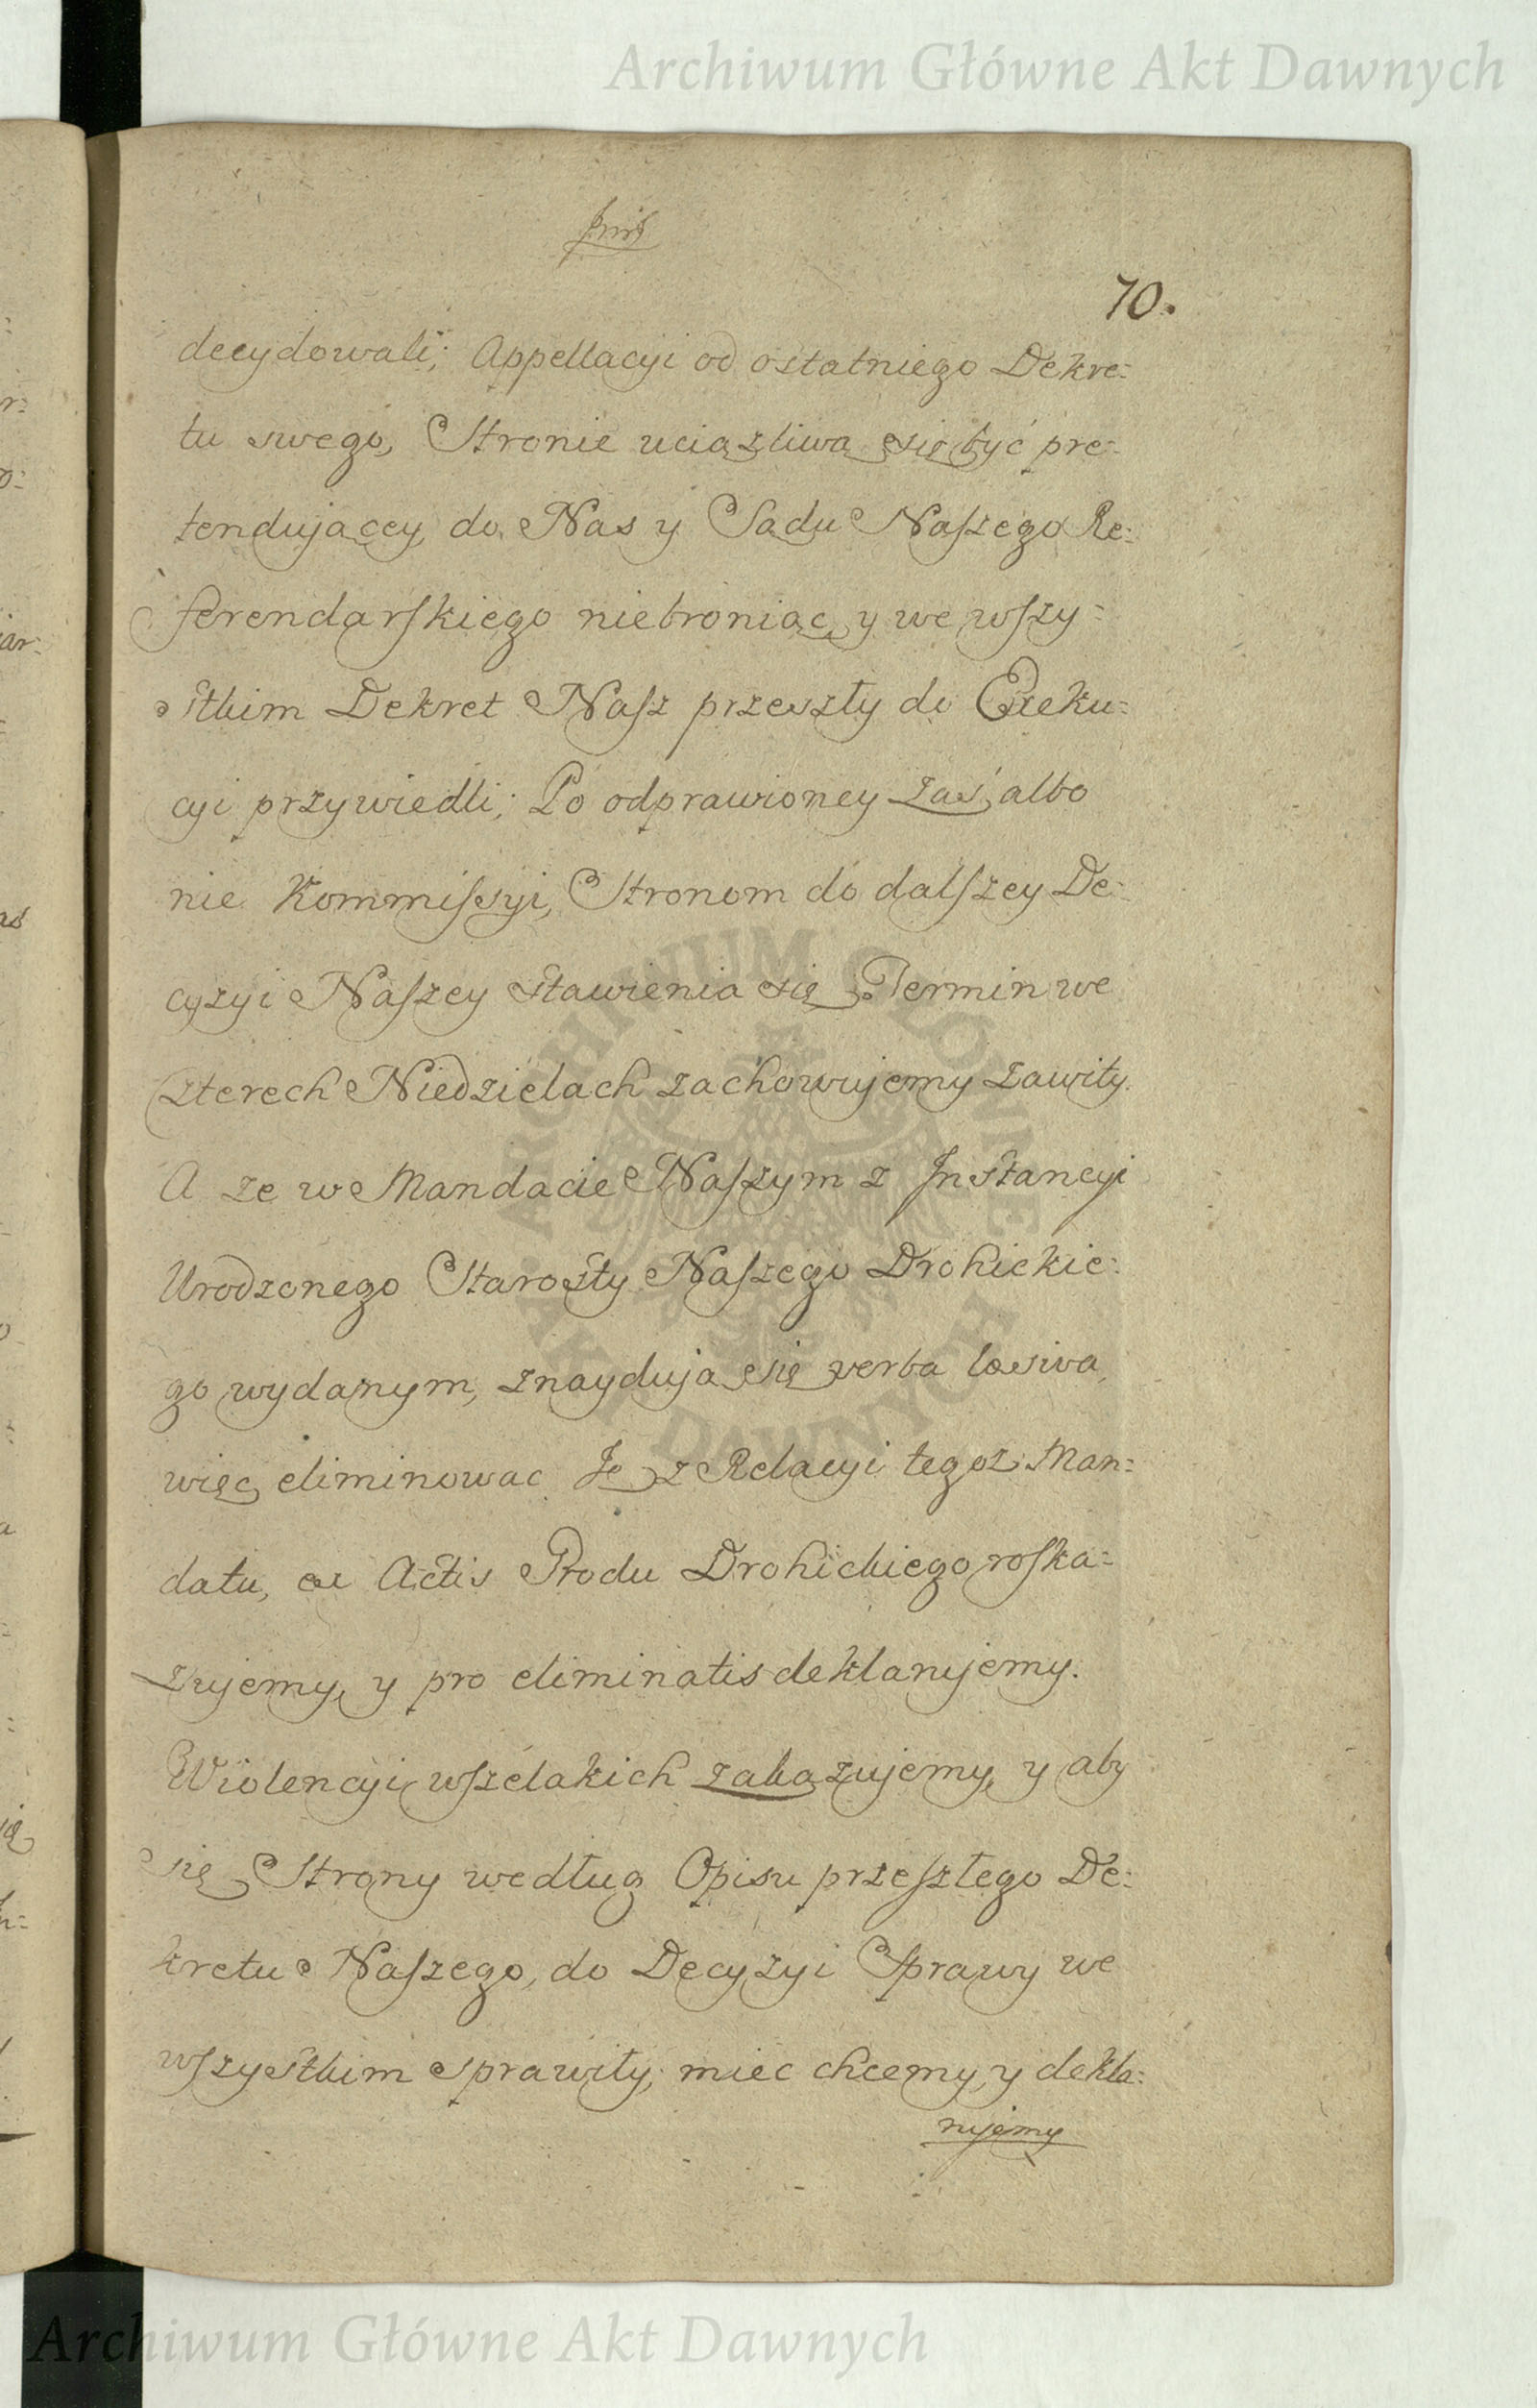 Archiwum Główne Akt Dawnych
70.
decydowali; Appellacyi od ostatniego Dekre:
tu swego, Stronie uciążliwą się być pre:
tendującey, do Nas y Sądu Naszego Re:
ferendarskiego niebroniąc, y we wszy:
stkim Dekret Nasz przeszły do Exeku:
cyi przywiedli; Po odprawioney zaś, albo
nie Kommissyi, Stronom do dalszey De:
cyzyi Naszey stawienia się Termin we
czterech Niedzielach zachowujemy zawity.
A ze w Mandacie Naszym z Instancyi
Urodzonego Starosty Naszego Drohickie:
go wydanym, znaydują się verba læsiva,
więc eliminowac Je z Relacyi tegoz Man:
datu, ex Actis Grodu Drohickiego roska:
zujemy, y pro eliminatis deklarujemy.
Wiolencyi wszelakich zakazujemy, y aby
się Strony według Opisu przeszłego De:
kretu Naszego, do Decyzyi Sprawy we
wszystkim sprawiły, miec chcemy, y dekla:
rujemy
ARCHIWUM GŁÓWNE AKT DAWNYCH
Archiwum Główne Akt Dawnych